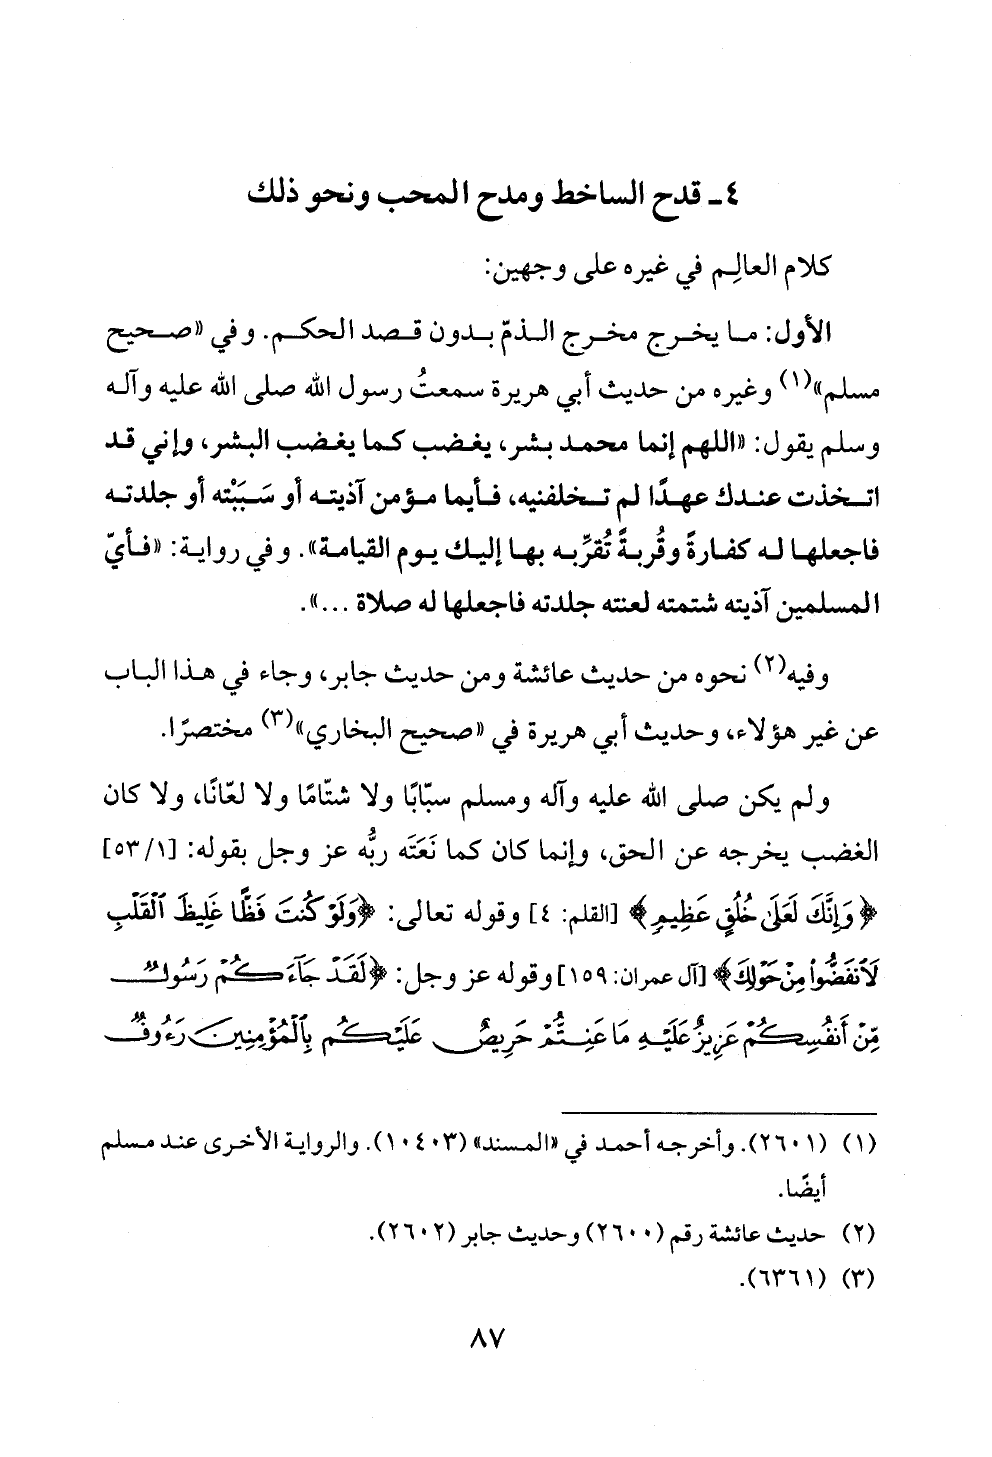 ٤- قدح الساخط ومدح المحب ونحو ذلك
كلام العالِم في غيره على وجهين:
الأول: ما يخرج مخرج الذمّ بدون قصد الحكم. وفي «صحيح
مسلم»(١) وغيره من حديث أبي هريرة سمعتُ رسول الله صلى الله عليه وآله
وسلم يقول: «اللهم إنما محمد بشر، يغضب كما يغضب البشر، وإني قد
اتخذت عندك عهدًا لم تخلفنيه، فأيما مؤمن آذيته أو سَبَبْته أو جلدته
فاجعلها له كفارةً وقُربةً تُقرِّبه بها إليك يوم القيامة». وفي رواية: «فأيّ
المسلمين آذيته شتمته لعنته جلدته فاجعلها له صلاة ...».
وفيه(٢) نحوه من حديث عائشة ومن حديث جابر، وجاء في هذا الباب
عن غير هؤلاء، وحديث أبي هريرة في «صحيح البخاري»(٣) مختصرًا.
ولم يكن صلى الله عليه وآله ومسلم سبّابًا ولا شتّامًا ولا لعّانًا، ولا كان
الغضب يخرجه عن الحق، وإنما كان كما نَعَتَه ربُّه عز وجل بقوله: [١/ ٥٣]
﴿وَإِنَّكَ لَعَلَىٰ خُلُقٍ عَظِيمٍ﴾ [القلم: ٤] وقوله تعالى: ﴿وَلَوْ كُنتَ فَظًّا غَلِيظَ ٱلْقَلْبِ
لَٱنفَضُّوا۟ مِنْ حَوْلِكَ﴾ [آل عمران: ١٥٩] وقوله عز وجل: ﴿لَقَدْ جَآءَكُمْ رَسُولٌ
مِّنْ أَنفُسِكُمْ عَزِيزٌ عَلَيْهِ مَا عَنِتُّمْ حَرِيصٌ عَلَيْكُم بِٱلْمُؤْمِنِينَ رَءُوفٌ
(١) (٢٦٠١). وأخرجه أحمد في «المسند» (١٠٤٠٣). والرواية الأخرى عند مسلم
أيضًا.
(٢) حديث عائشة رقم (٢٦٠٠) وحديث جابر (٢٦٠٢).
(٣) (٦٣٦١).
٨٧